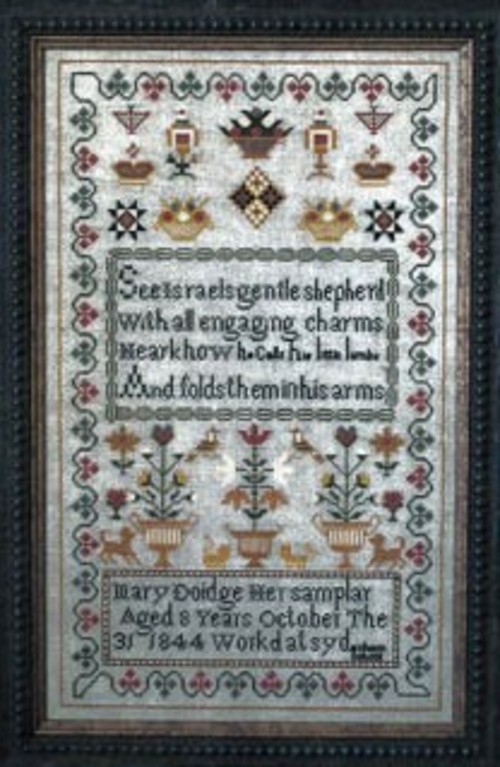 See israels gentle shepherd
With all engaging charms
Hearkhow he Calls his little lambs
And folds them in his arms
Mary Doidge Her samplar
Aged 8 Years October The
31 1844 Workd at syd